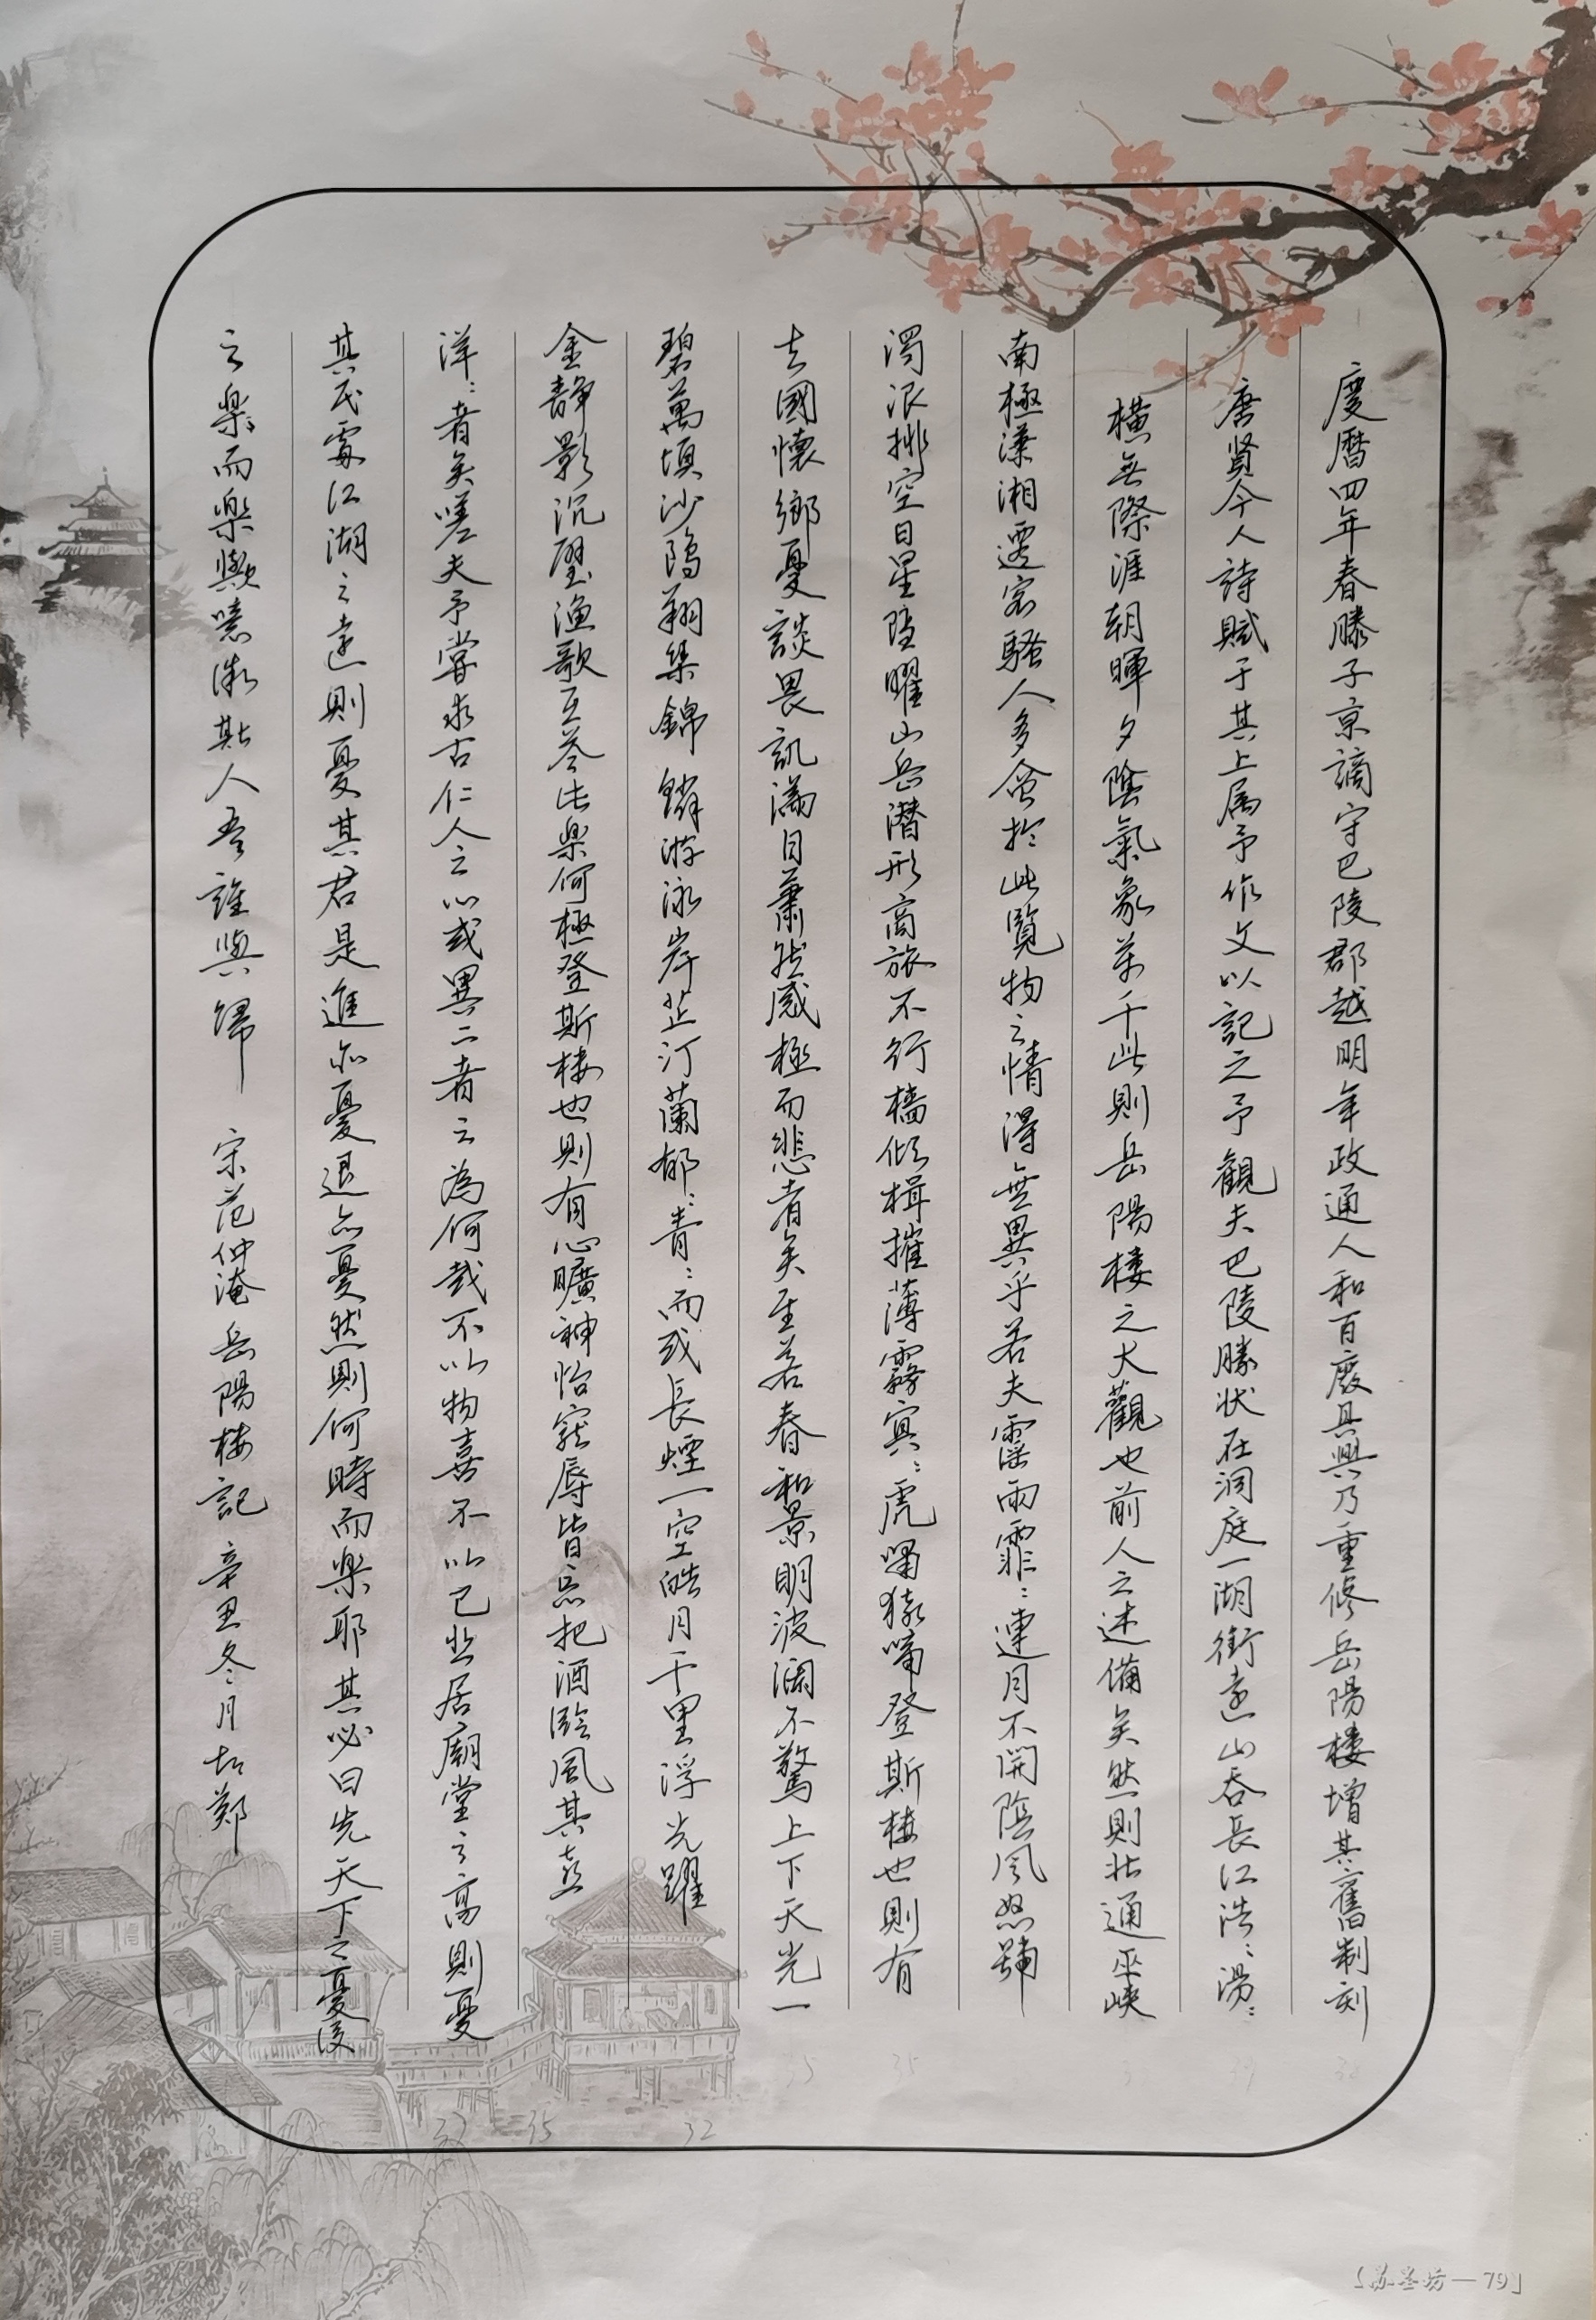 慶曆四年春滕子京謫守巴陵郡越明年政通人和百廢具興乃重修岳陽樓增其舊制刻
唐賢今人詩賦于其上属予作文以記之予觀夫巴陵勝状在洞庭一湖銜遠山吞長江浩〻湯〻
橫無際涯朝暉夕陰氣象萬千此則岳陽樓之大觀也前人之述備矣然則北通巫峽
南極瀟湘遷客騷人多會於此覽物之情得無異乎若夫霪雨霏〻連月不開陰風怒號
濁浪排空日星隐曜山岳潛形商旅不行檣傾楫摧薄霧冥〻虎嘯猿啼登斯樓也則有
去國懷鄉憂讒畏譏滿目蕭然感極而悲者矣至若春和景明波瀾不驚上下天光一
碧萬頃沙鷗翔集錦鱗游泳岸芷汀蘭郁〻青〻而或長煙一空皓月千里浮光躍
金静影沉璧漁歌互答此樂何極登斯樓也則有心曠神怡寵辱皆忘把酒臨風其喜
洋〻者矣嗟夫予嘗求古仁人之心或異二者之為何哉不以物喜不以己悲居廟堂之高則憂
其民處江湖之遠則憂其君是進亦憂退亦憂然則何時而樂耶其必曰先天下之憂後
之樂而樂歟噫微斯人吾誰與歸 宋范仲淹岳陽樓記 辛丑冬月
33 35 32
【苏墨坊—79】